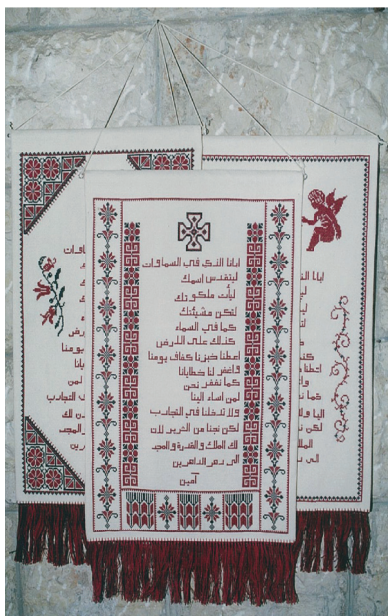 ابانا الذي في السماوات
ليتقدس اسمك
ليأت ملكوتك
لتكن مشيئتك
كما في السماء
كذلك على الارض
اعطنا خبزنا كفاف يومنا
و اغفر لنا خطايانا
كما نغفر نحن
لمن اساء الينا
ولا تدخلنا في التجارب
لكن نجنا من الشرير لان
لك الملك و القدرة و المجد
الى دهر الداهرين
امين
يومنا
لمن
التجارب
لك
ابانا